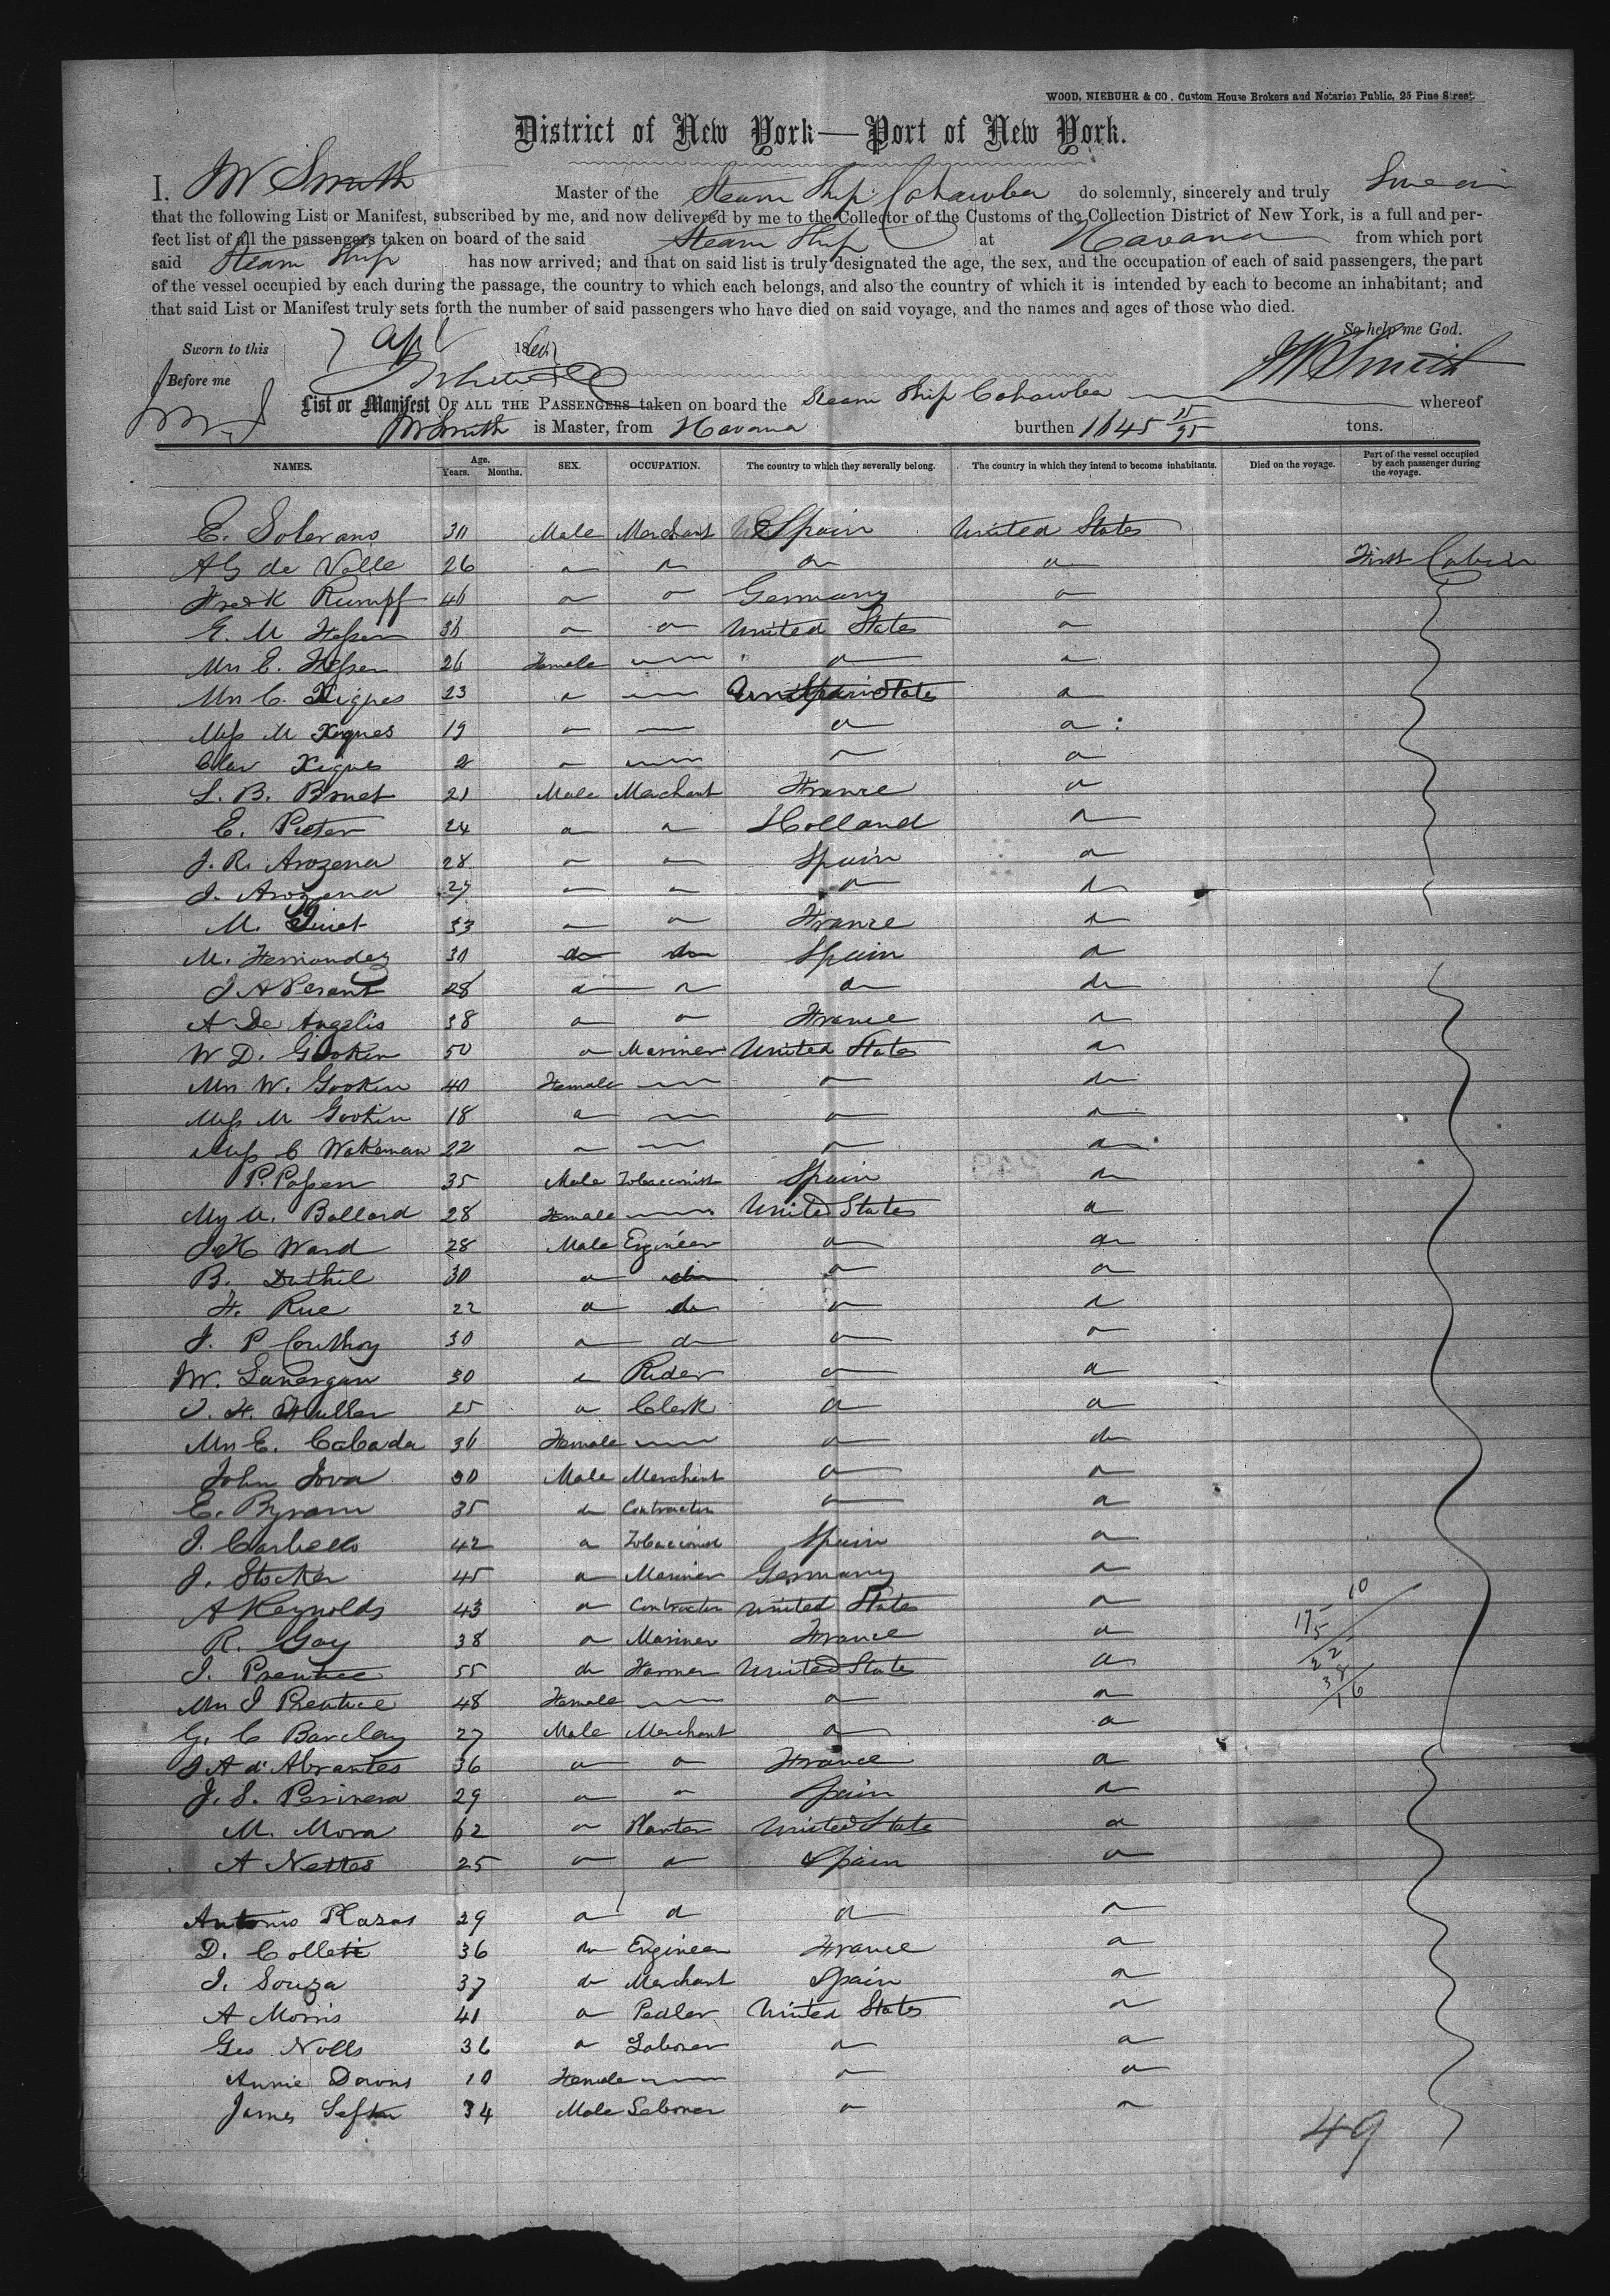 WOOD, NIEBUHR & CO., Custom House Brokers and Notaries Public, 25 Pine Street.
District of New York—Port of New York.
I, JW Smith Master of the Steam Ship Cahawba do solemnly, sincerely and truly Swear
that the following List or Manifest, subscribed by me, and now delivered by me to the Collector of the Customs of the Collection District of New York, is a full and per-
fect list of all the passengers taken on board of the said Steam Ship at Havana from which port
said Steam Ship has now arrived; and that on said list is truly designated the age, the sex, and the occupation of each of said passengers, the part
of the vessel occupied by each during the passage, the country to which each belongs, and also the country of which it is intended by each to become an inhabitant; and
that said List or Manifest truly sets forth the number of said passengers who have died on said voyage, and the names and ages of those who died.
So help me God.
Sworn to this Apl 186
Before me JW Smith
List or Manifest OF ALL THE PASSENGERS taken on board the Steam Ship Cahawba whereof
JW Smith is Master, from Havana burthen 1645 15/95 tons.
NAMES. Age. Years. Months. SEX. OCCUPATION. The country to which they severally belong. The country in which they intend to become inhabitants. Died on the voyage. Part of the vessel occupied by each passenger during the voyage.
E. Solerano 30 Male Merchant Spain United States
A G de Valle 26 do do do do First Cabin
Fredk Rumpf 46 do do Germany do
E. M Hessen 36 do do United States do
Mrs E. Hessen 26 Female do do
Mrs C. Xiques 23 do United States do
Miss M Xiques 19 do do do
Clar Xiques 2 do do do
L. B. Bruet 21 Male Merchant France do
E. Pieter 24 do do Holland do
J. R. Arozena 28 do do Spain do
J. Arozena 27 do do do do
M. Ginet 33 do do France do
M. Hernandez 30 do do Spain do
J A Perant 28 do do do do
A De Angelis 38 do do France do
W D. Gookin 50 do Mariner United States do
Mrs W. Gookin 40 Female do do
Miss M Gookin 18 do do do
Miss C Wakeman 22 do do do
P. Possen 35 Male Tobacconist Spain do
My M. Ballard 28 Female United States do
J H Ward 28 Male Engineer do do
B. Duthil 30 do do do do
H. Rue 22 do do do do
J. P Couthoy 30 do do do do
W. Lanergan 30 do Rider do do
J. H. Fuller 25 do Clerk do do
Mrs E. Cabada 36 Female do do
John Jova 30 Male Merchant do do
E. Byram 35 do Contractor do do
J. Carbello 42 do Tobacconist Spain do
J. Stocker 45 do Mariner Germany do
A Reynolds 43 do Contractor United States do
R. Gay 38 do Mariner France do
J. Prentice 55 do Farmer United States do
Mrs J Prentice 48 Female do do
G. C Barclay 27 Male Merchant do do
J A d'Abrantes 36 do do France do
J. S. Perinera 29 do do Spain do
M. Mora 62 do Planter United States do
A Nettes 25 do do Spain do
Antonio Plazas 29 do do do do
D. Collete 36 do Engineer France do
J. Souza 37 do Merchant Spain do
A Morris 41 do Pedler United States do
Geo Nolls 36 do Laborer do do
Annie Downs 10 Female do do
James Sefton 34 Male Laborer do do
49